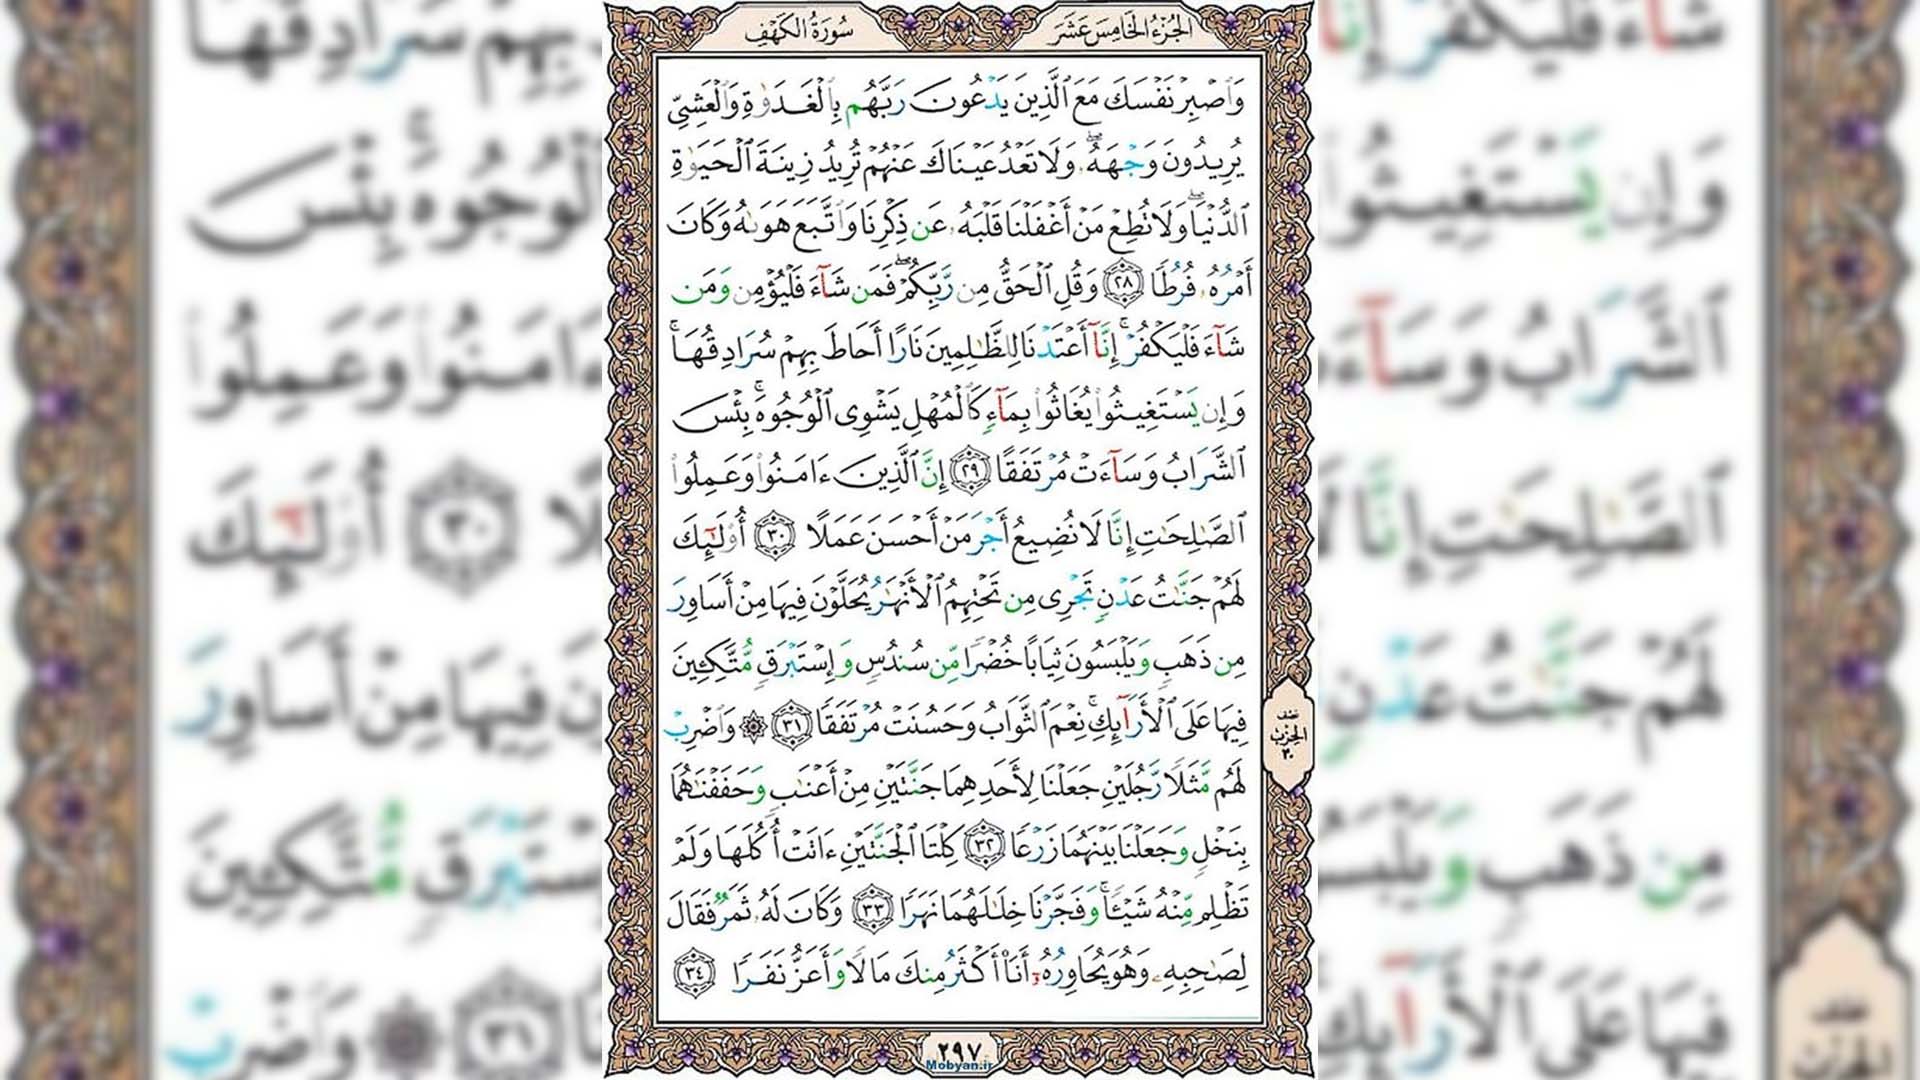 الجُزءُ الخَامِسَ عَشَرَ
سُورَةُ الكَهۡفِ
وَٱصۡبِرۡ نَفۡسَكَ مَعَ ٱلَّذِينَ يَدۡعُونَ رَبَّهُم بِٱلۡغَدَوٰةِ وَٱلۡعَشِيِّ
يُرِيدُونَ وَجۡهَهُۥۖ وَلَا تَعۡدُ عَيۡنَاكَ عَنۡهُمۡ تُرِيدُ زِينَةَ ٱلۡحَيَوٰةِ
ٱلدُّنۡيَاۖ وَلَا تُطِعۡ مَنۡ أَغۡفَلۡنَا قَلۡبَهُۥ عَن ذِكۡرِنَا وَٱتَّبَعَ هَوَىٰهُ وَكَانَ
أَمۡرُهُۥ فُرُطٗا ٢٨ وَقُلِ ٱلۡحَقُّ مِن رَّبِّكُمۡۖ فَمَن شَآءَ فَلۡيُؤۡمِن وَمَن
شَآءَ فَلۡيَكۡفُرۡۚ إِنَّآ أَعۡتَدۡنَا لِلظَّٰلِمِينَ نَارًا أَحَاطَ بِهِمۡ سُرَادِقُهَاۚ
وَإِن يَسۡتَغِيثُواْ يُغَاثُواْ بِمَآءٖ كَٱلۡمُهۡلِ يَشۡوِي ٱلۡوُجُوهَۚ بِئۡسَ
ٱلشَّرَابُ وَسَآءَتۡ مُرۡتَفَقًا ٢٩ إِنَّ ٱلَّذِينَ ءَامَنُواْ وَعَمِلُواْ
ٱلصَّٰلِحَٰتِ إِنَّا لَا نُضِيعُ أَجۡرَ مَنۡ أَحۡسَنَ عَمَلًا ٣٠ أُوْلَٰٓئِكَ
لَهُمۡ جَنَّٰتُ عَدۡنٖ تَجۡرِي مِن تَحۡتِهِمُ ٱلۡأَنۡهَٰرُ يُحَلَّوۡنَ فِيهَا مِنۡ أَسَاوِرَ
مِن ذَهَبٖ وَيَلۡبَسُونَ ثِيَابًا خُضۡرٗا مِّن سُندُسٖ وَإِسۡتَبۡرَقٖ مُّتَّكِـِٔينَ
فِيهَا عَلَى ٱلۡأَرَآئِكِۚ نِعۡمَ ٱلثَّوَابُ وَحَسُنَتۡ مُرۡتَفَقٗا ٣١ ۞ وَٱضۡرِبۡ
نصف
الحزب
٣٠
لَهُم مَّثَلٗا رَّجُلَيۡنِ جَعَلۡنَا لِأَحَدِهِمَا جَنَّتَيۡنِ مِنۡ أَعۡنَٰبٖ وَحَفَفۡنَٰهُمَا
بِنَخۡلٖ وَجَعَلۡنَا بَيۡنَهُمَا زَرۡعٗا ٣٢ كِلۡتَا ٱلۡجَنَّتَيۡنِ ءَاتَتۡ أُكُلَهَا وَلَمۡ
تَظۡلِم مِّنۡهُ شَيۡـٔٗاۚ وَفَجَّرۡنَا خِلَٰلَهُمَا نَهَرٗا ٣٣ وَكَانَ لَهُۥ ثَمَرٞ فَقَالَ
لِصَٰحِبِهِۦ وَهُوَ يُحَاوِرُهُۥٓ أَنَا۠ أَكۡثَرُ مِنكَ مَالٗا وَأَعَزُّ نَفَرٗا ٣٤
٢٩٧
Mobyan.ir